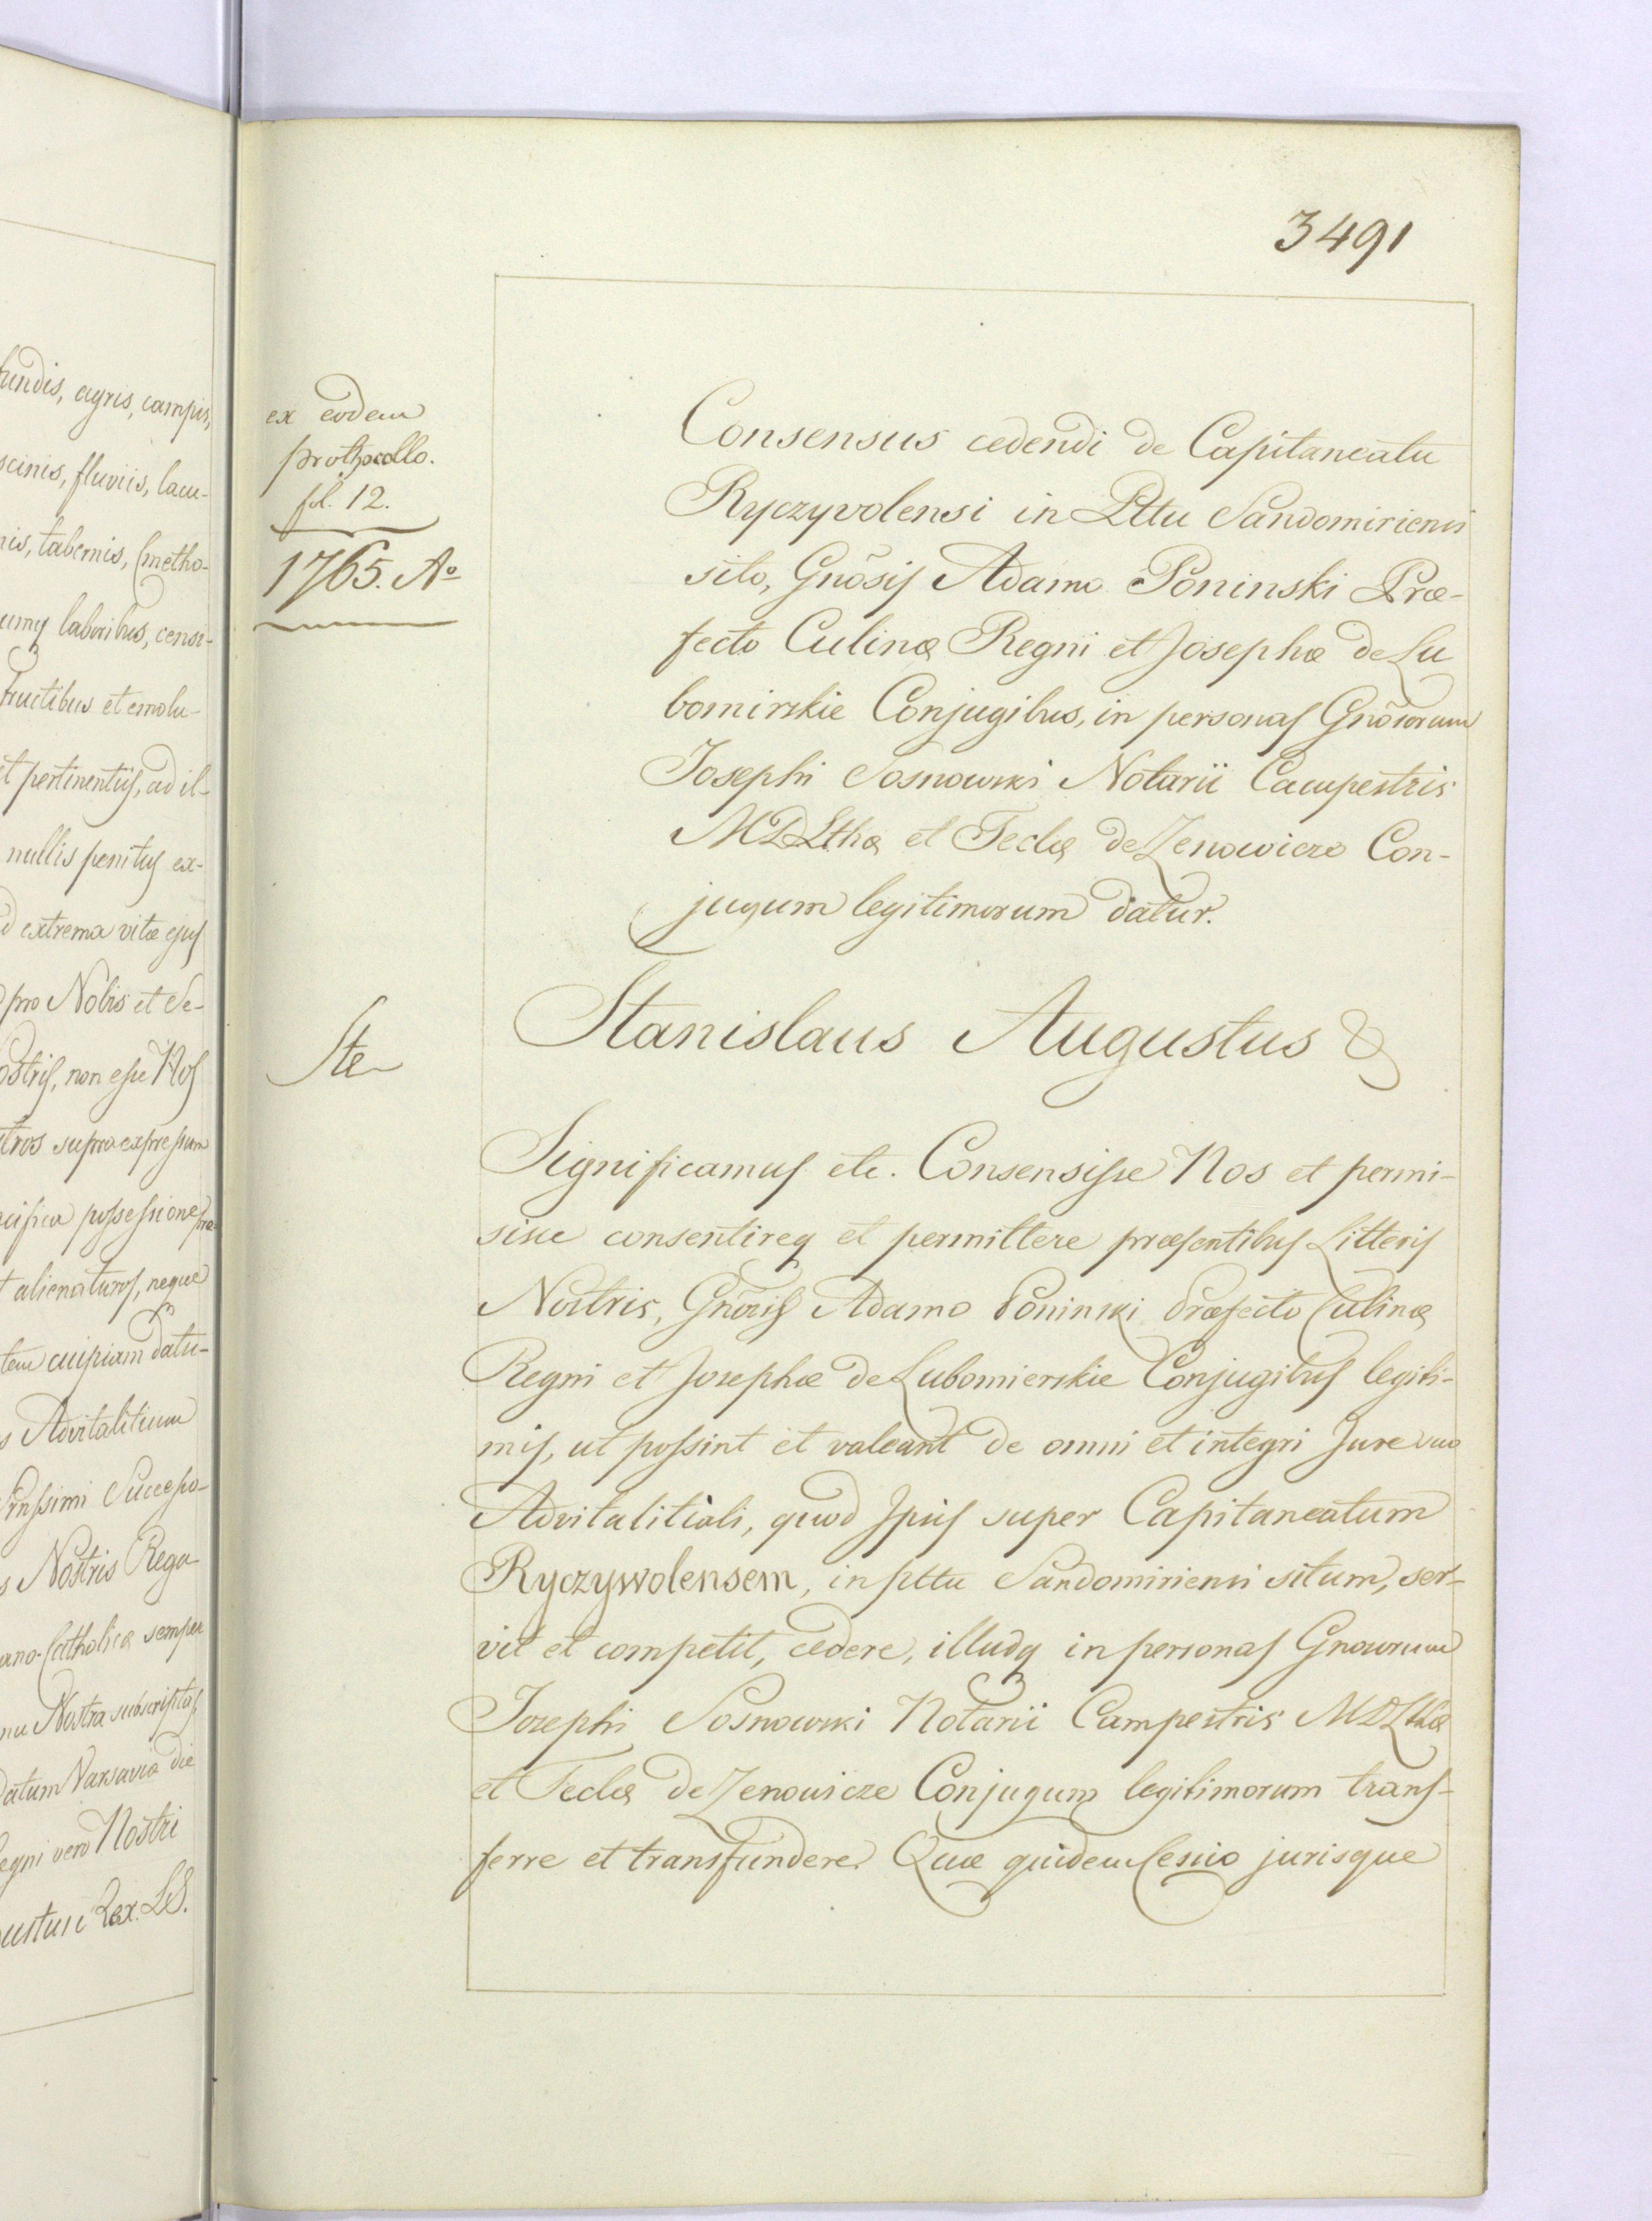 3491
ex eodem
prothocollo.
fol. 12.
1765. Aº
Consensus cedendi de Capitaneatu
Ryczyvolensi in Pttu Sandomiriensi
sito, Gnõsis Adamo Poninski Præ-
fecto Culinæ Regni et Josephæ de Lu
bomirskie Conjugibus, in personas Gnõsorum
Josephi Sosnowski Notarii Campestris
MDLthæ et Teclæ de Zenowicze Con-
jugum legitimorum datur.
Ste
Stanislaus Augustus &
Significamus etc. Consensisse Nos et permi-
sisse consentireq et permittere præsentibus Litteris
Nostris, Gnõsis Adamo Poninski Præfecto Culinæ
Regni et Josephæ de Lubomierskie Conjugibus legiti-
mis, ut possint et valeant de omni et integri Jure suo
Advitalitiali, quod Ipsis super Capitaneatum
Ryczywolensem, in pttu Sandomiriensi situm, ser-
vit et competit, cedere, illudq in personas Gnosorum
Josephi Sosnowski Notarii Campestris MDLthæ
et Teclæ de Zenowicze Conjugum legitimorum trans-
ferre et transfundere. Quæ quidem Cessio jurisque
fundis, agris, campis,
scinis, fluviis, lacu-
nis, tabernis, Cmetho-
umq laboribus, censi-
fructibus et emolu-
et pertinentiis, ad il-
nullis penitus ex-
d extrema vitæ ejus
pro Nobis et Se-
ostris, non esse Nos
tros supra expressum
acifica possessione præ-
t alienaturos, neque
tem cuipiam datu-
s Advitalitium
Srnssimi Successo-
s Nostris Rega-
ano-Catholicæ semper
nu Nostra subscriptas
Datum Varsaviæ die
egni vero Nostri
ustus Rex. LS.